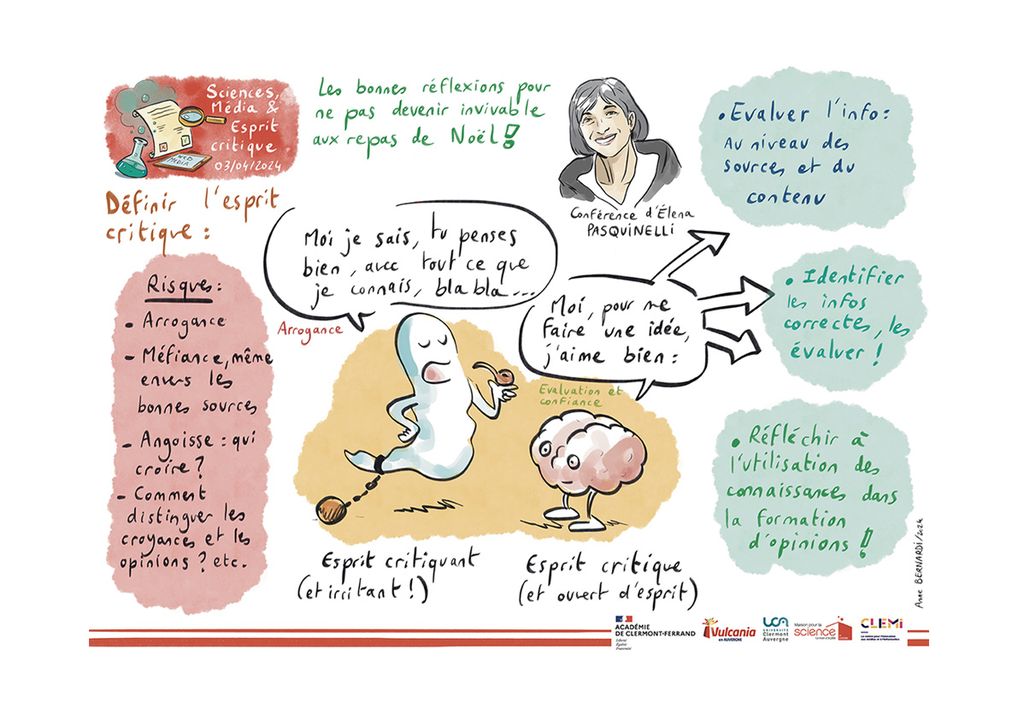 Sciences,
Média &
Esprit
critique
03/04/2024
WEB
MEDIA
Les bonnes réflexions pour
ne pas devenir invivable
aux repas de Noël !
Conférence d'Élena
PASQUINELLI
• Evaluer l'info :
Au niveau des
sources et du
contenu
Définir l'esprit
critique :
Risques :
• Arrogance
- Méfiance, même
envers les
bonnes sources
- Angoisse : qui
croire ?
- Comment
distinguer les
croyances et les
opinions ? etc.
Moi je sais, tu penses
bien, avec tout ce que
je connais, bla bla ...
Arrogance
Moi, pour me
faire une idée,
j'aime bien :
Evaluation et
confiance
• Identifier
les infos
correctes, les
évaluer !
• Réfléchir à
l'utilisation des
connaissances dans
la formation
d'opinions !
Esprit critiquant
(et irritant !)
Esprit critique
(et ouvert d'esprit)
Anne BERNARDI/2024
ACADÉMIE
DE CLERMONT-FERRAND
Liberté
Égalité
Fraternité
Vulcania
EN AUVERGNE
UCA
UNIVERSITÉ
Clermont
Auvergne
Maison pour la
science
CLEMI